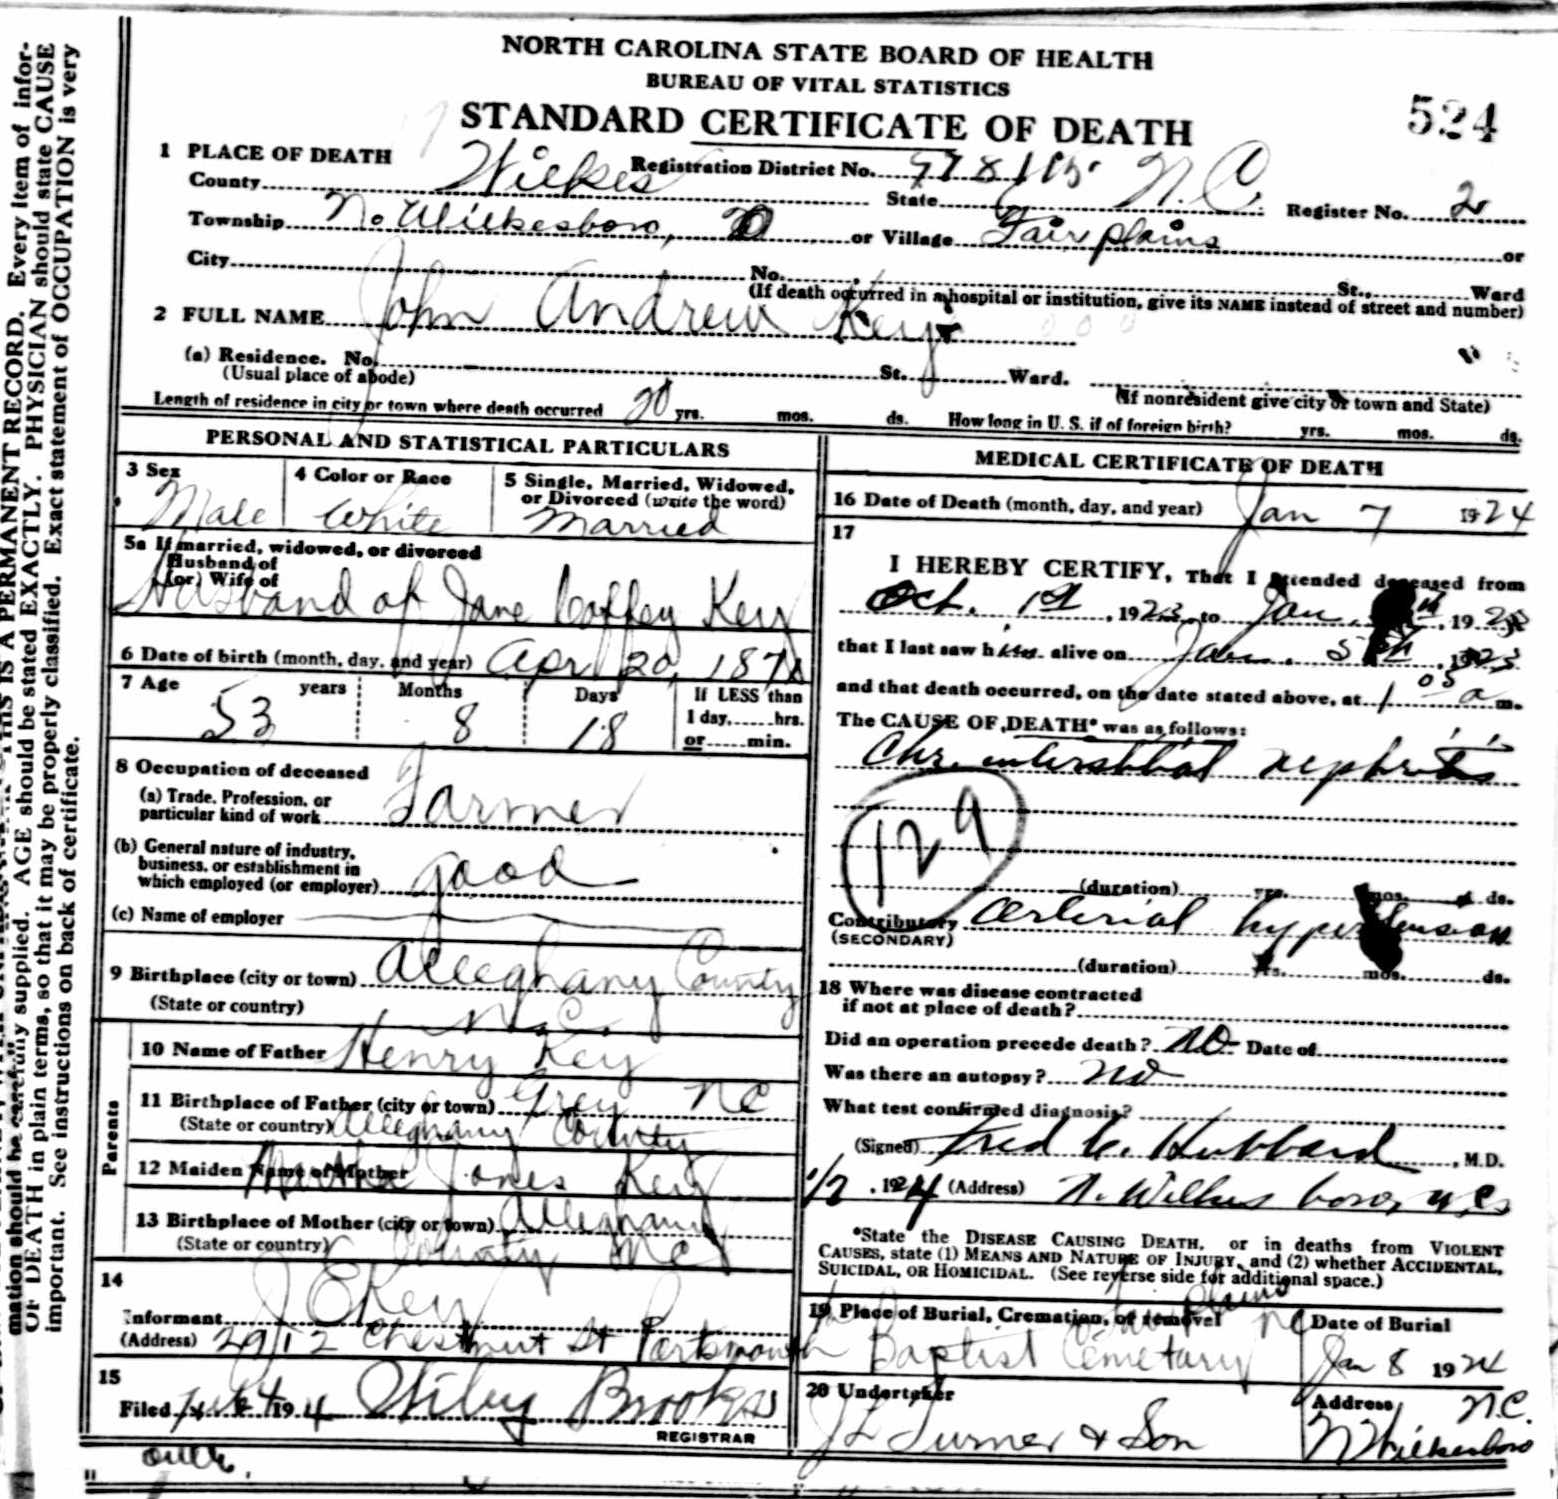 mation should be carefully supplied. AGE should be stated EXACTLY. PHYSICIAN should state CAUSE
OF DEATH in plain terms, so that it may be properly classified. Exact statement of OCCUPATION is very
important. See instructions on back of certificate.
THIS IS A PERMANENT RECORD. Every item of infor-
NORTH CAROLINA STATE BOARD OF HEALTH
BUREAU OF VITAL STATISTICS
STANDARD CERTIFICATE OF DEATH
524
1 PLACE OF DEATH
Registration District No.
County Wilkes State N.C. Register No. 2
Township No Wilkesboro, or Village Fairplains or
City No. St., Ward
(If death occurred in a hospital or institution, give its NAME instead of street and number)
2 FULL NAME John Andrew Key
(a) Residence. No. St. Ward.
(Usual place of abode) (If nonresident give city or town and State)
Length of residence in city or town where death occurred 20 yrs. mos. ds. How long in U. S. if of foreign birth? yrs. mos. ds.
PERSONAL AND STATISTICAL PARTICULARS
3 Sex 4 Color or Race 5 Single, Married, Widowed,
or Divorced (write the word)
Male White Married
5a If married, widowed, or divorced
Husband of
(or) Wife of
Husband of Jane Coffey Key
6 Date of birth (month, day, and year) Apr 20, 187
7 Age 53 years Months 8 Days 18 If LESS than
1 day, hrs.
or min.
8 Occupation of deceased
(a) Trade, Profession, or
particular kind of work Farmer
(b) General nature of industry,
business, or establishment in
which employed (or employer) good
(c) Name of employer
9 Birthplace (city or town) Alleghany County
(State or country) N.C.
Parents
10 Name of Father Henry Key
11 Birthplace of Father (city or town) Grey NC
(State or country) Alleghany County
12 Maiden Name of Mother Martha Jones Key
13 Birthplace of Mother (city or town) Alleghany
(State or country) County NC
14
Informant J E Key
(Address) 2912 Chestnut St Portsmouth
15
Filed 194 Wiley Brooks
REGISTRAR
MEDICAL CERTIFICATE OF DEATH
16 Date of Death (month, day, and year) Jan 7 1924
17
I HEREBY CERTIFY, That I attended deceased from
Oct. 1st, 1923, to Jan. , 192
that I last saw him alive on Jan. 5th, 1923
and that death occurred, on the date stated above, at 1 05 a m.
The CAUSE OF DEATH* was as follows:
Chr. interstitial nephritis
129
(duration) yrs. mos. ds.
Contributory arterial hypertension
(SECONDARY)
(duration) yrs. mos. ds.
18 Where was disease contracted
if not at place of death?
Did an operation precede death? No Date of
Was there an autopsy? No
What test confirmed diagnosis?
(Signed) Fred C. Hubbard, M.D.
1/7, 1924 (Address) N. Wilkesboro, N.C.
*State the DISEASE CAUSING DEATH, or in deaths from VIOLENT
CAUSES, state (1) MEANS AND NATURE OF INJURY, and (2) whether ACCIDENTAL,
SUICIDAL, OR HOMICIDAL. (See reverse side for additional space.)
19 Place of Burial, Cremation, or removel Date of Burial
Fair plains NC
Baptist Cemetary Jan 8 1924
20 Undertaker Address
J L Turner & Son N Wilkesboro N.C.